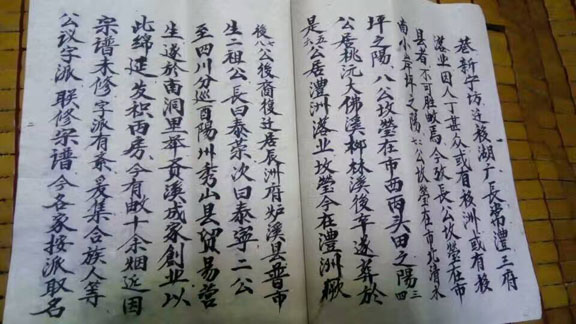 巷新字坊迁移湖广長常澧三府
落业因人丁甚众或有移洲或有移
县者不可胜畋焉今故長公坟塋在市
南小岸坪之陽二公坟塋在市北清水
坪之陽八公坟塋在市西两头田之陽三四
公居桃沅大佛溪柳林溪後卒遂葬於
是五六公居澧洲落业坟塋今在澧洲
後八公後裔後迁居辰洲府炉溪县普市
生二祖公長曰泰荣次曰泰寧二公
至四川分巡酉陽州秀山县贸易营
生遂於南洞里贡溪成家创业以
此绵延发积两房今有畋十余烟远因
宗谱未修字派有紊爰集合族人等
公议字派联修宗谱今各家按派取名